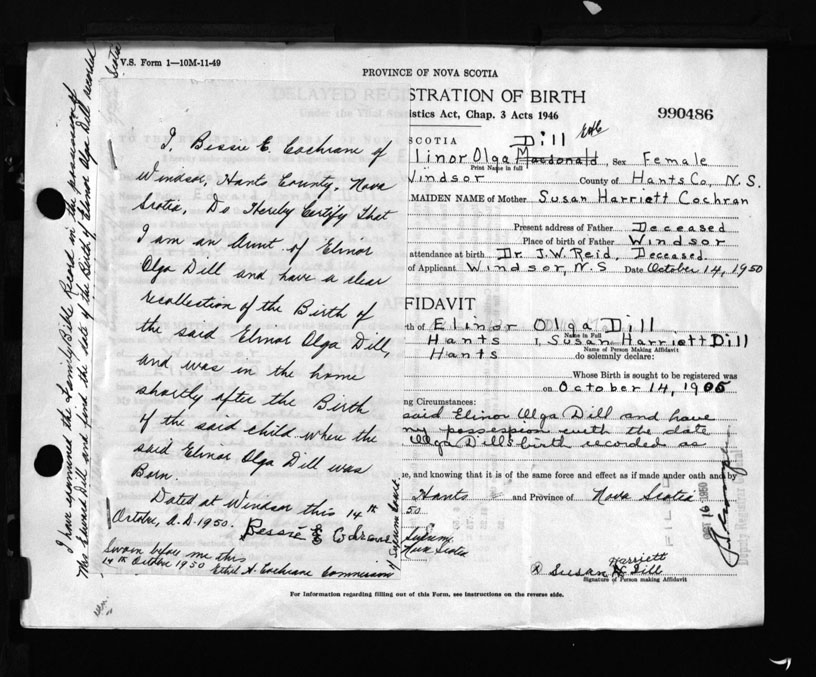 V.S. Form 1—10M-11-49
PROVINCE OF NOVA SCOTIA
DELAYED REGISTRATION OF BIRTH
istics Act, Chap. 3 Acts 1946
990486
SCOTIA Dill
linor Olga Macdonald, Sex Female
Print Name in full
Windsor County of Hants Co, N.S.
MAIDEN NAME of Mother Susan Harriett Cochran
Present address of Father Deceased
Place of birth of Father Windsor
attendance at birth Dr. J.W. Reid, Deceased.
of Applicant Windsor, N.S Date October 14, 1950
FIDAVIT
th of Elinor Olga Dill
Name in Full
Hants I, Susan Harriett Dill
Name of Person Making Affidavit
Hants do solemnly declare:
Whose Birth is sought to be registered was
on October 14, 1905
ng Circumstances:
said Elinor Olga Dill and have
my possession with the date
Olga Dill's birth recorded as
ue, and knowing that it is of the same force and effect as if made under oath and by
Hants and Province of Nova Scotia
50
Supreme
Nova Scotia
Harriett
X Susan H Dill
Signature of Person making Affidavit
For Information regarding filling out of this Form, see instructions on the reverse side.
I, Bessie E. Cochrane of
Windsor, Hants County, Nova
Scotia, Do Hereby Certify That
I am an Aunt of Elinor
Olga Dill and have a clear
recollection of the Birth of
the said Elinor Olga Dill,
and was in the home
shortly after the Birth
of the said child where the
said Elinor Olga Dill was
Born.
Dated at Windsor this 14th
October, A.D. 1950. Bessie E Cochrane
Sworn before me this
14th October 1950 Ethel A. Cochrane Commission
of Supreme Court.
I have examined the Family Bible Record in the possession of
Mrs Edward Dill and find the date of the Birth of Elinor Olga Dill recorded
Scotia
FILED
OCT 16 1950
Deputy Registrar General